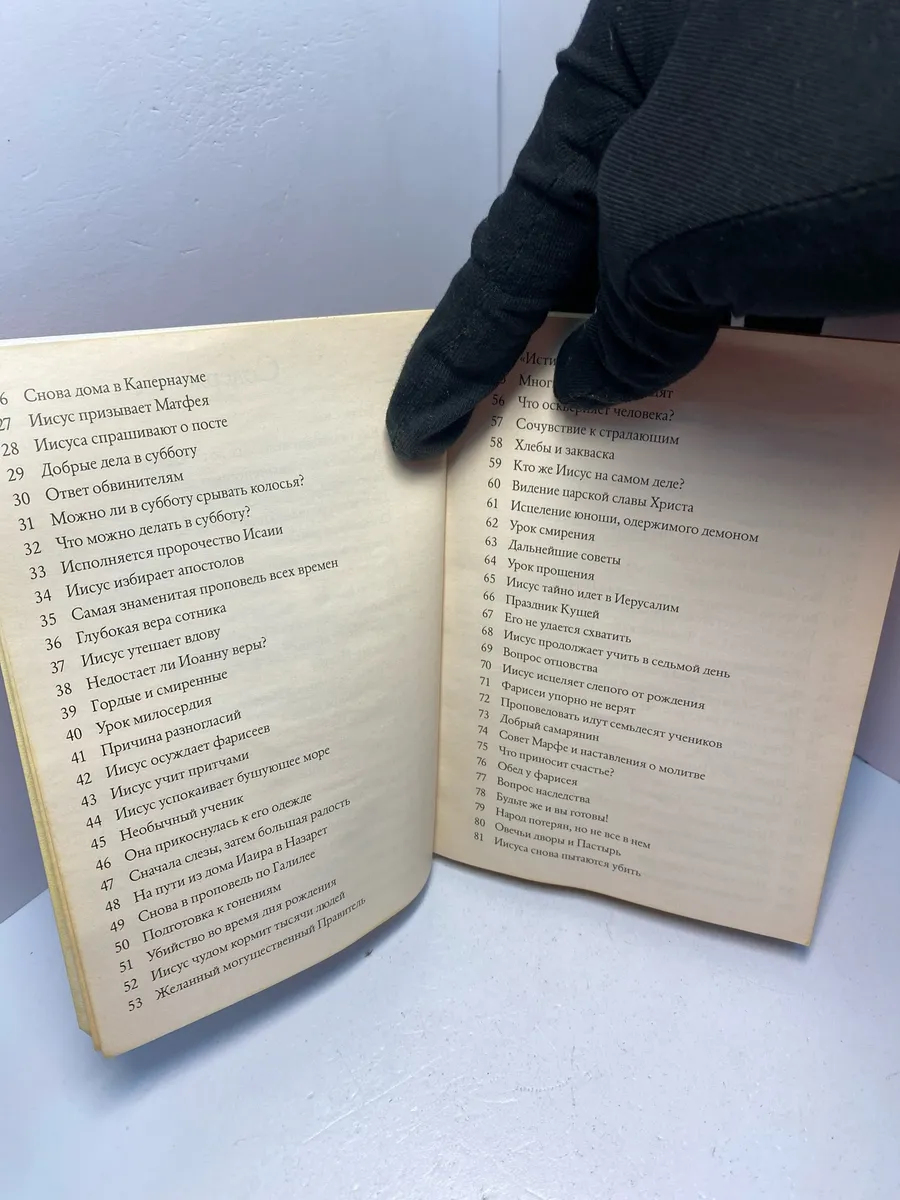 6 Снова дома в Капернауме
27 Иисус призывает Матфея
28 Иисуса спрашивают о посте
29 Добрые дела в субботу
30 Ответ обвинителям
31 Можно ли в субботу срывать колосья?
32 Что можно делать в субботу?
33 Исполняется пророчество Исаии
34 Иисус избирает апостолов
35 Самая знаменитая проповедь всех времен
36 Глубокая вера сотника
37 Иисус утешает вдову
38 Недостает ли Иоанну веры?
39 Гордые и смиренные
40 Урок милосердия
41 Причина разногласий
42 Иисус осуждает фарисеев
43 Иисус учит притчами
44 Иисус успокаивает бушующее море
45 Необычный ученик
46 Она прикоснулась к его одежде
47 Сначала слезы, затем большая радость
48 На пути из дома Иаира в Назарет
49 Снова в проповедь по Галилее
50 Подготовка к гонениям
51 Убийство во время дня рождения
52 Иисус чудом кормит тысячи людей
53 Желанный могущественный Правитель
56 Что оскверняет человека?
57 Сочувствие к страдающим
58 Хлебы и закваска
59 Кто же Иисус на самом деле?
60 Видение царской славы Христа
61 Исцеление юноши, одержимого демоном
62 Урок смирения
63 Дальнейшие советы
64 Урок прощения
65 Иисус тайно идет в Иерусалим
66 Праздник Кущей
67 Его не удается схватить
68 Иисус продолжает учить в седьмой день
69 Вопрос отцовства
70 Иисус исцеляет слепого от рождения
71 Фарисеи упорно не верят
72 Проповедовать идут семьдесят учеников
73 Добрый самарянин
74 Совет Марфе и наставления о молитве
75 Что приносит счастье?
76 Обед у фарисея
77 Вопрос наследства
78 Будьте же и вы готовы!
79 Народ потерян, но не все в нем
80 Овечьи дворы и Пастырь
81 Иисуса снова пытаются убить